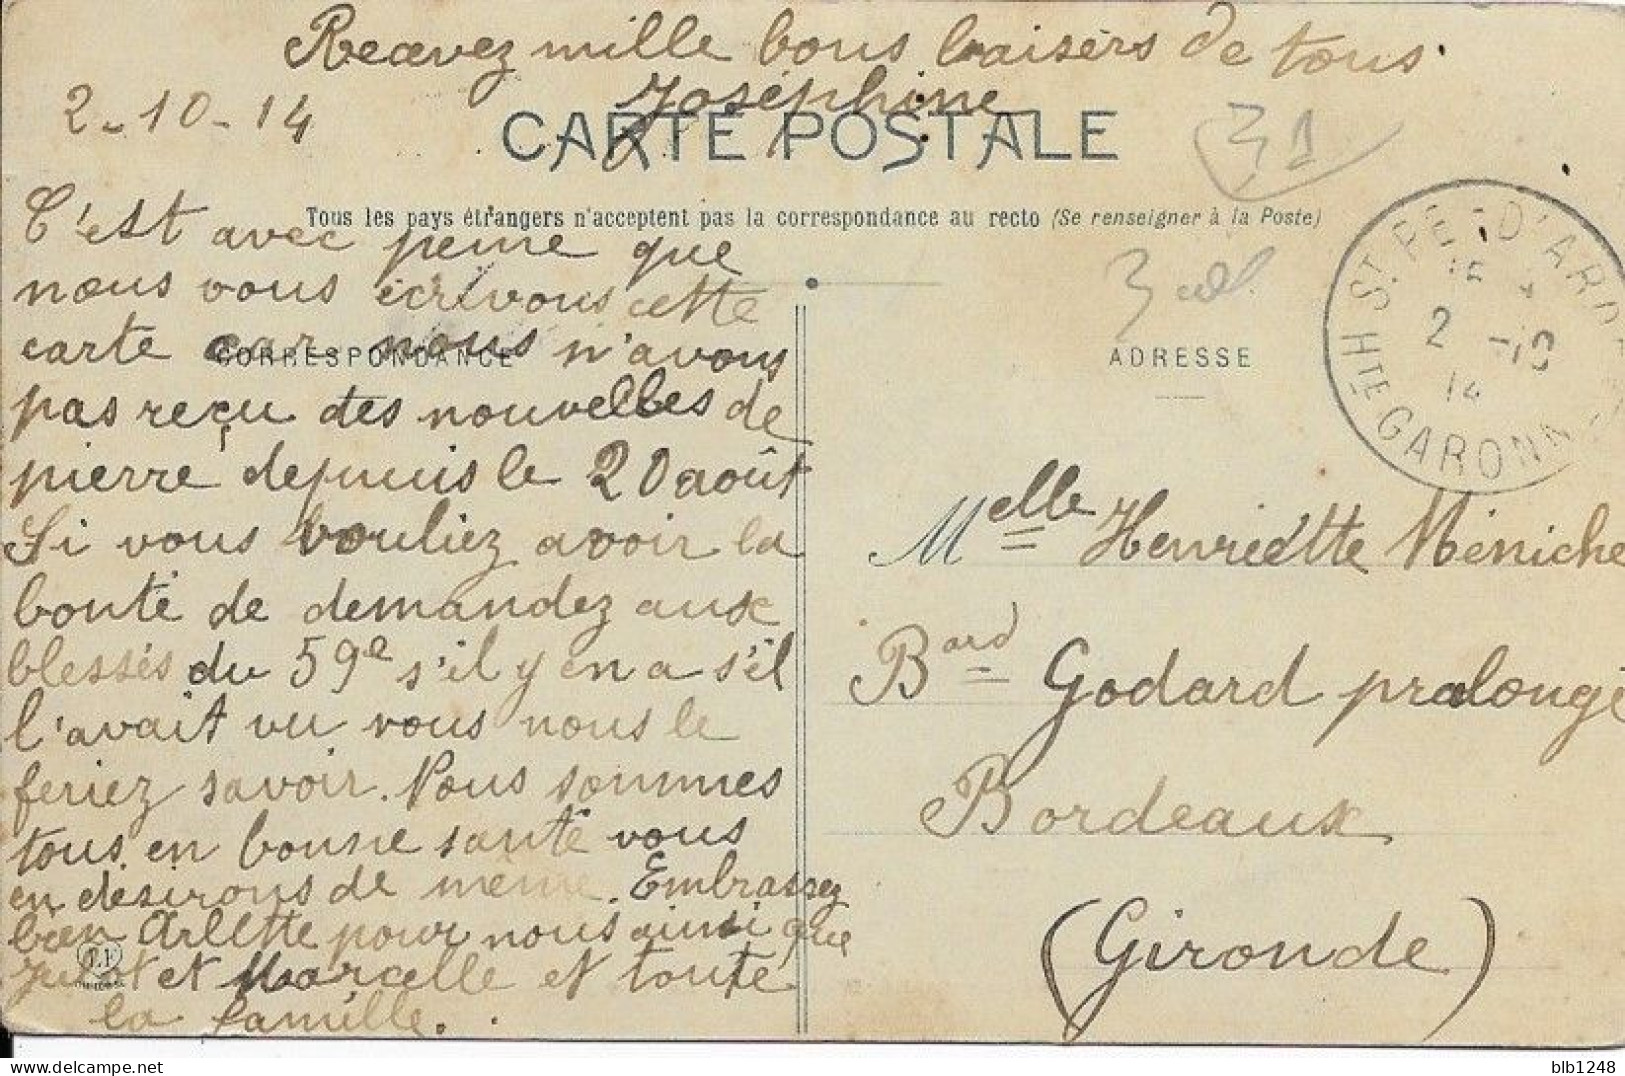 Recevez mille bons baisers de tous
Joséphine
2-10-14
CARTE POSTALE
31
Tous les pays étrangers n'acceptent pas la correspondance au recto (Se renseigner à la Poste)
C'est avec peine que
nous vous écrivons cette
carte car nous n'avons
pas reçu des nouvelles de
pierre depuis le 20 août
Si vous vouliez avoir la
bonté de demandez aux
blessés du 59e s'il y en a s'il
l'avait vu vous nous le
feriez savoir. Nous sommes
tous en bonne santé vous
en désirons de même. Embrassez
bien Arlette pour nous ainsi que
et Marcelle et toute
la famille.
CORRESPONDANCE
ADRESSE
ST PÉ-D'ARD
HTE GARONN
15
2 -10
14
Melle Henriette Méniche
Bard Godard prolongé
Bordeaux
(Gironde)
blb1248